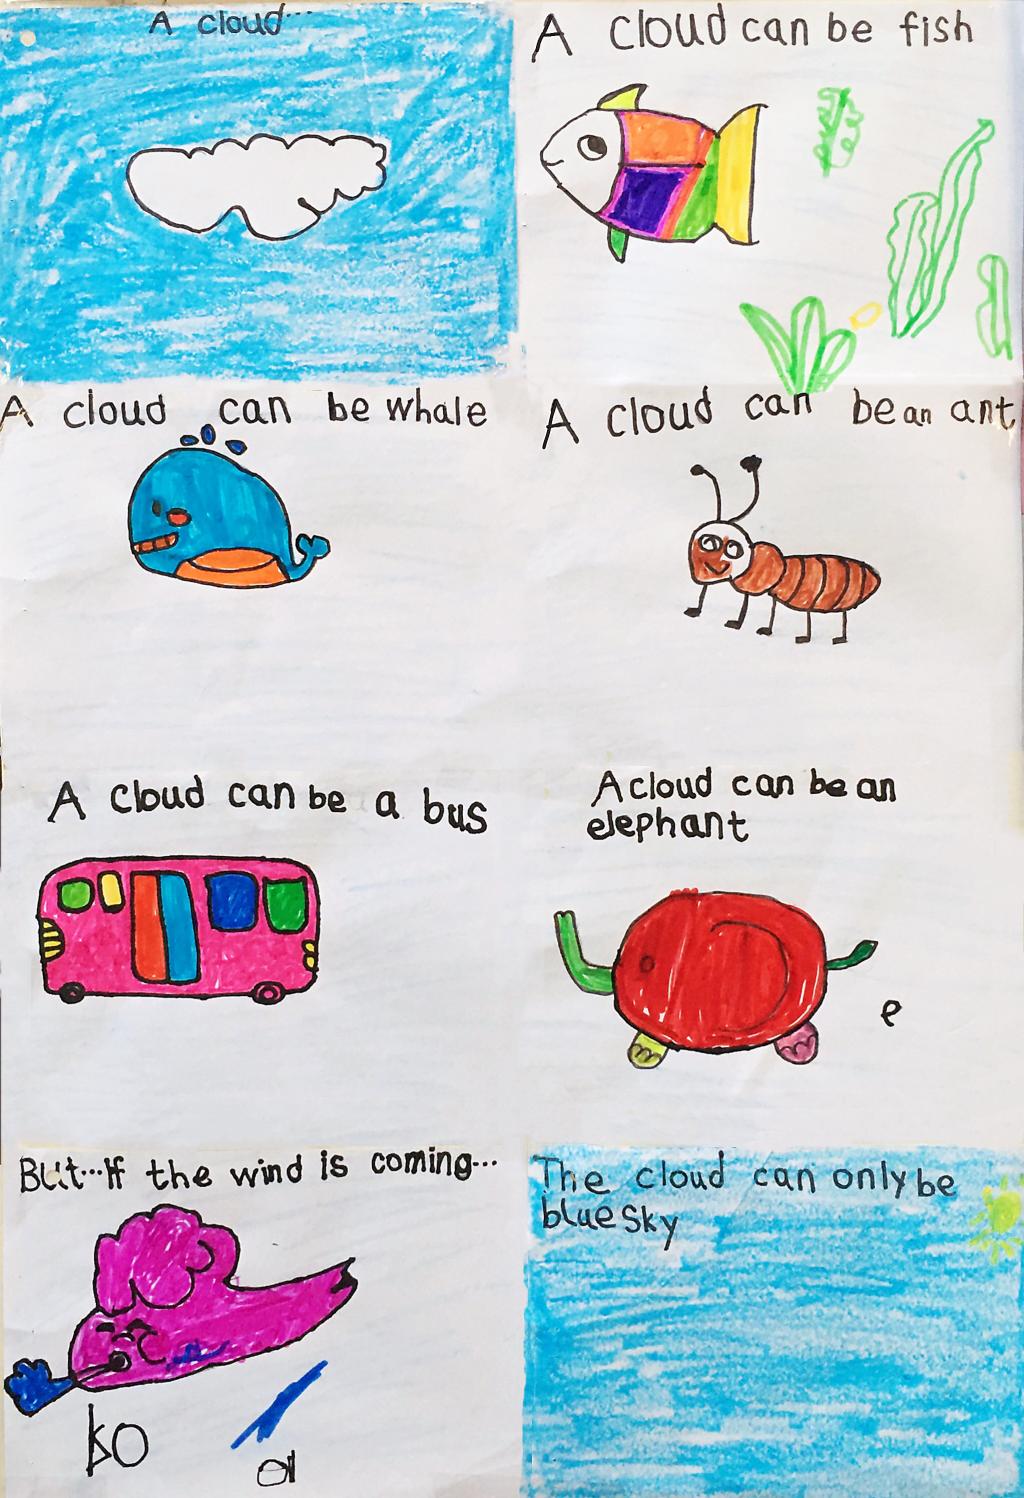 A cloud...
A cloud can be fish
A cloud can be whale
A cloud can be an ant
A cloud can be a bus
A cloud can be an
elephant
e
But...If the wind is coming...
The cloud can only be
blue sky